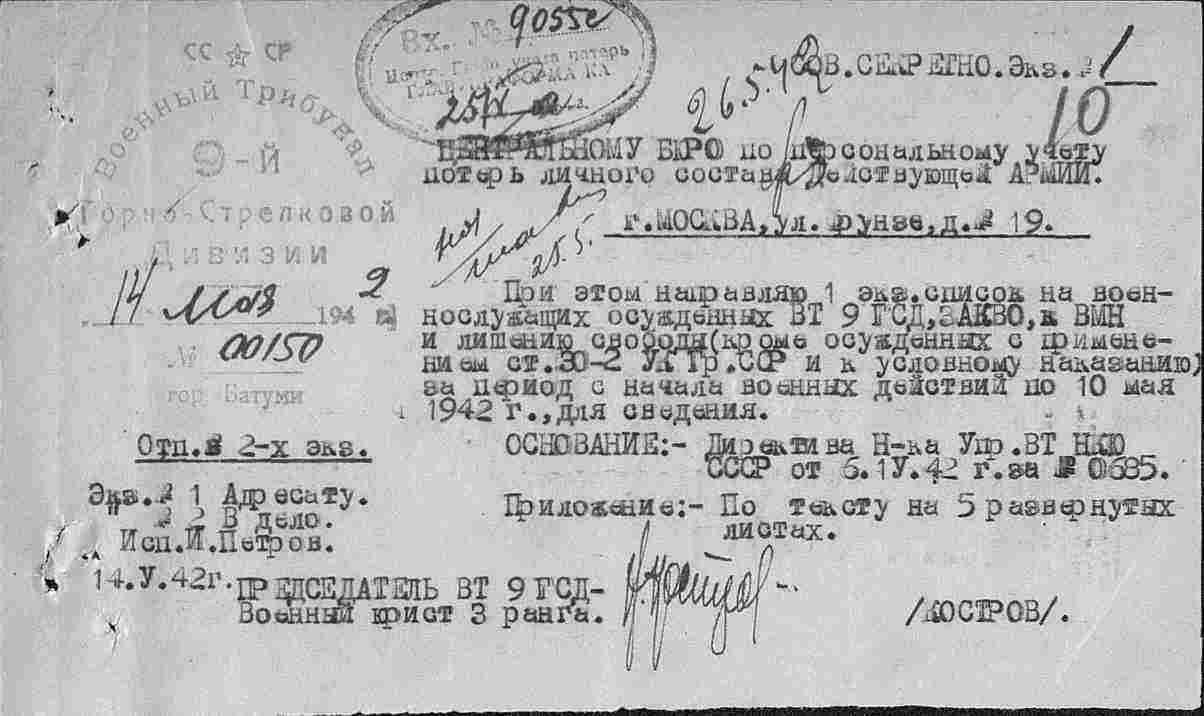 СС СР
Военный Трибунал
9-й
Горно-Стрелковой
Дивизии
14 Мая 1942 г.
№ 00150
гор Батуми
Вх. № 9055с
учета потерь
ГЛАВУПРАФОРМА КА
26.5.42
СОВ.СЕКРЕТНО.Экз.№ 1
10
ЦЕНТРАЛЬНОМУ БЮРО по персональному учету
потерь личного состава Действующей АРМИИ.
г.МОСКВА,ул.Фрунзе,д.№ 19.
25.5.
При этом направляю 1 экз.список на воен-
нослужащих осужденных ВТ 9 ГСД,ЗАКВО,к ВМН
и лишению свободы(кроме осужденных с примене-
нием ст.30-2 УК Гр.ССР и к условному наказанию)
за период с начала военных действий по 10 мая
1942 г.,для сведения.
ОСНОВАНИЕ:- Директива Н-ка Упр.ВТ НКЮ
СССР от 6.1У.42 г.за № 0685.
Приложение:- По тексту на 5 развернутых
листах.
Отп.в 2-х экз.
Экз.№ 1 Адресату.
" № 2 В дело.
Исп.И.Петров.
14.У.42г.
ПРЕДСЕДАТЕЛЬ ВТ 9 ГСД-
Военный юрист 3 ранга.
/КОСТРОВ/.